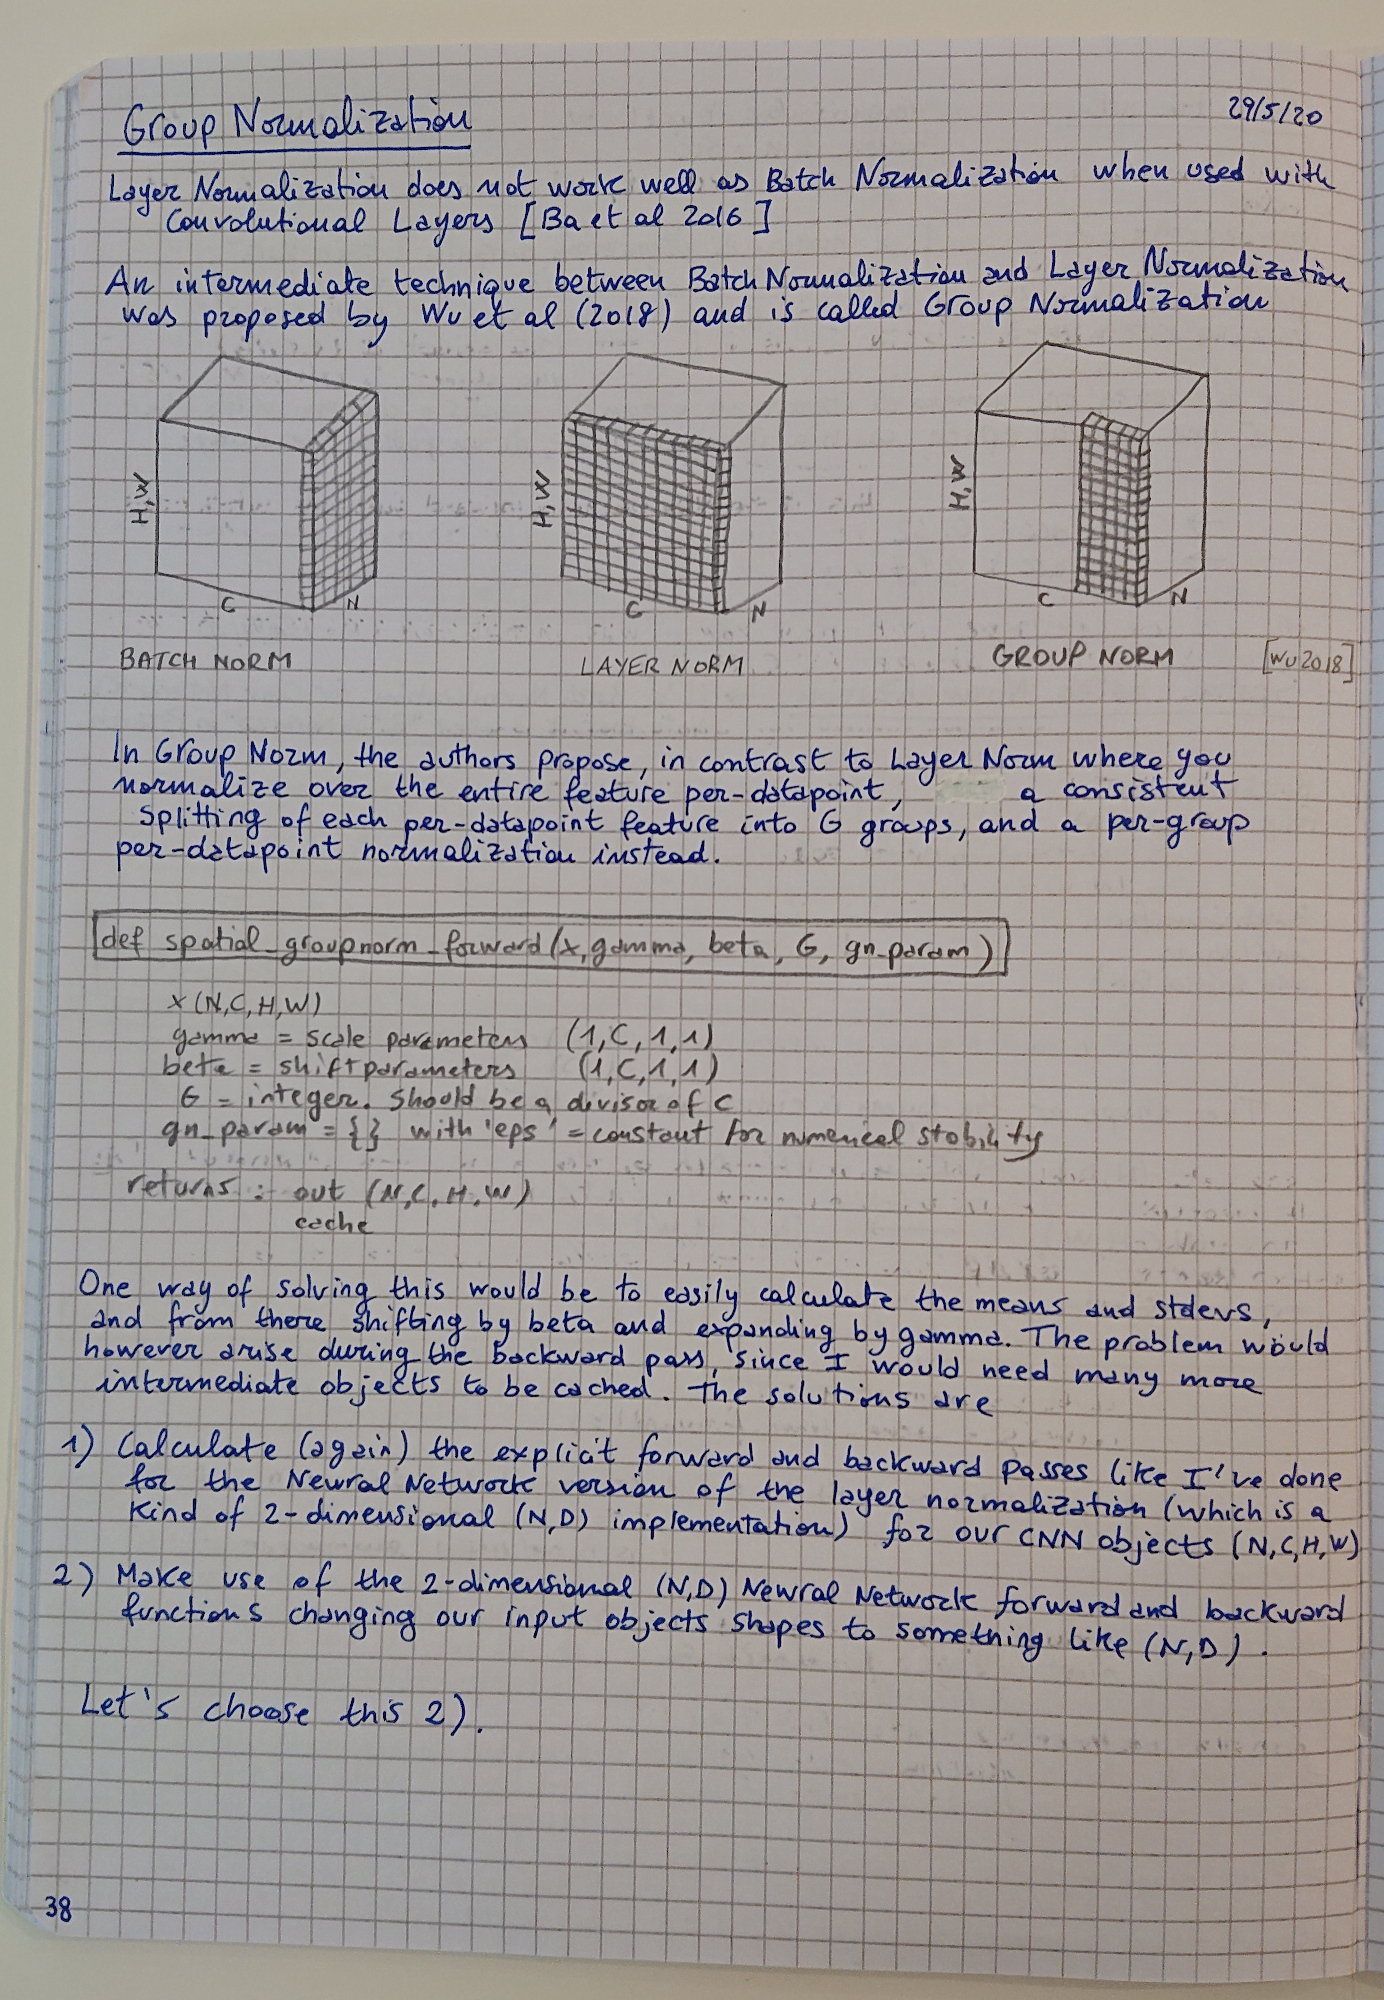 Group Normalization
29/5/20
Layer Normalization does not work well as Batch Normalization when used with
Convolutional Layers [Ba et al 2016]
An intermediate technique between Batch Normalization and Layer Normalization
was proposed by Wu et al (2018) and is called Group Normalization
H,W
C
N
H,W
C
N
H,W
C
N
BATCH NORM
LAYER NORM
GROUP NORM
[Wu 2018]
In Group Norm, the authors propose, in contrast to Layer Norm where you
normalize over the entire feature per-datapoint, a consistent
splitting of each per-datapoint feature into G groups, and a per-group
per-datapoint normalization instead.
def spatial_groupnorm_forward(x, gamma, beta, G, gn_param)
x (N,C,H,W)
gamma = scale parameters (1,C,1,1)
beta = shift parameters (1,C,1,1)
G = integer. Should be a divisor of C
gn_param = {} with 'eps' = constant for numerical stability
returns : out (N,C,H,W)
cache
One way of solving this would be to easily calculate the means and stdevs,
and from there shifting by beta and expanding by gamma. The problem would
however arise during the backward pass, since I would need many more
intermediate objects to be cached. The solutions are
1) Calculate (again) the explicit forward and backward passes like I've done
for the Newral Network version of the layer normalization (which is a
kind of 2-dimensional (N,D) implementation) for our CNN objects (N,C,H,W)
2) Make use of the 2-dimensional (N,D) Newral Network forward and backward
functions changing our input objects shapes to something like (N,D).
Let's choose this 2).
38